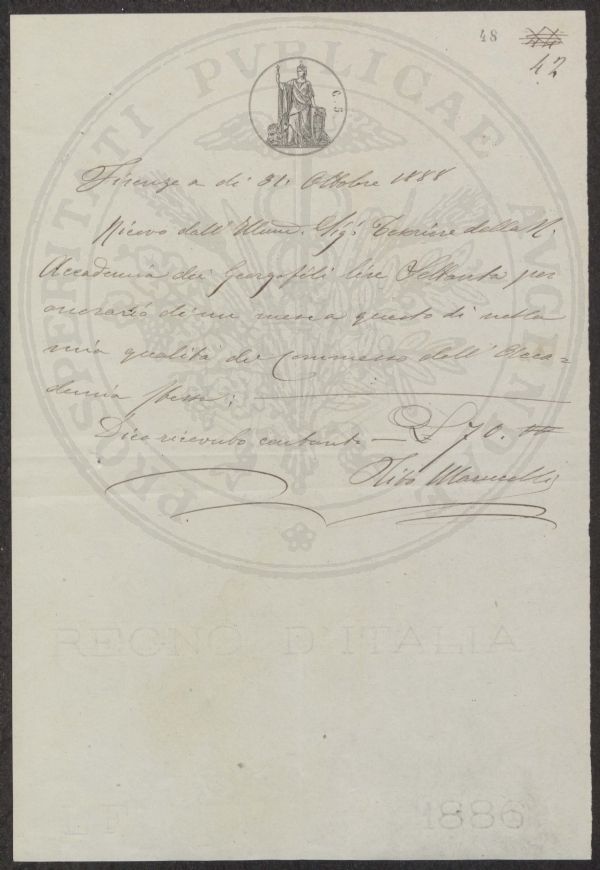 48
42
C. 5
Firenze a dì 31. Ottobre 1888
Ricevo dall' Illmo. Sig. Tesoriere della R.
Accademia dei Georgofili lire Settanta per
onorario di un mese a questo dì nella
mia qualità di Commesso dell' Acca-
demia stessa;
Dico ricevuto contanti — £ 70. 00
Marucelli
PROSPERITATI PVBLICAE AVGENDAE
REGNO D'ITALIA
1886